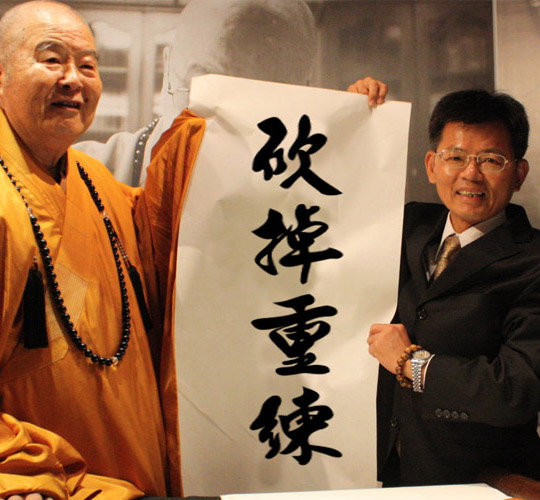 砍掉重練